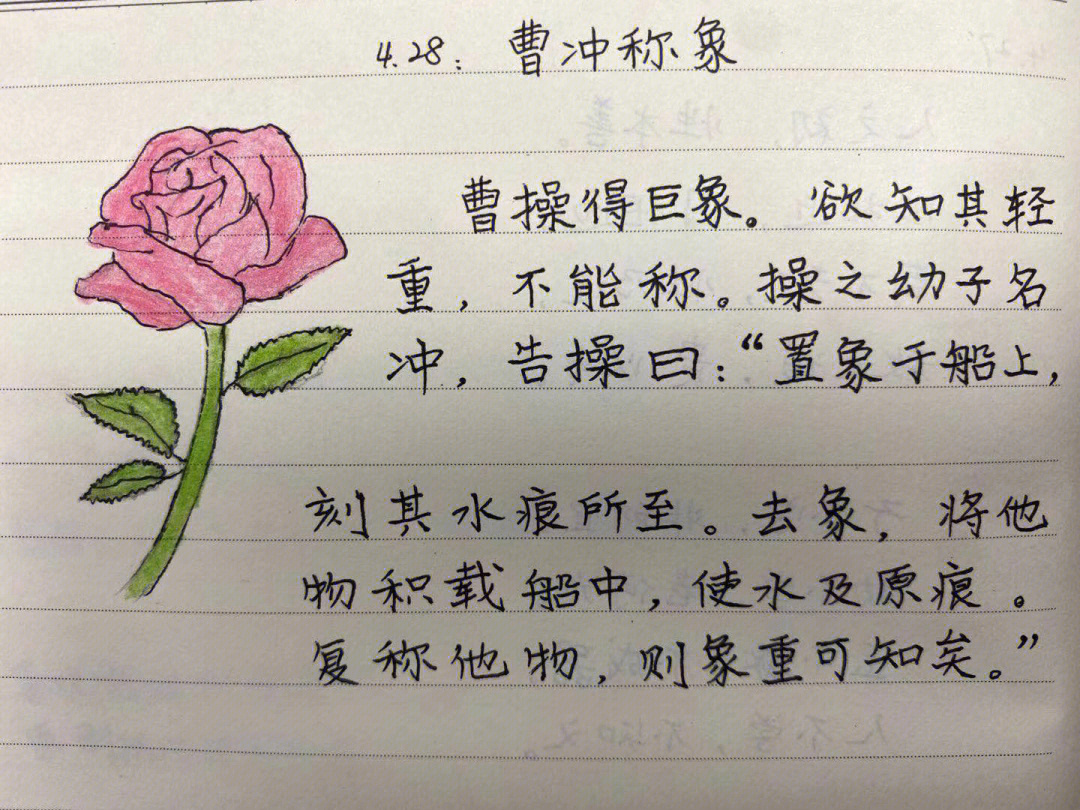 4.28：曹冲称象
曹操得巨象。欲知其轻
重，不能称。操之幼子名
冲，告操曰：“置象于船上，
刻其水痕所至。去象，将他
物积载船中，使水及原痕。
复称他物，则象重可知矣。”